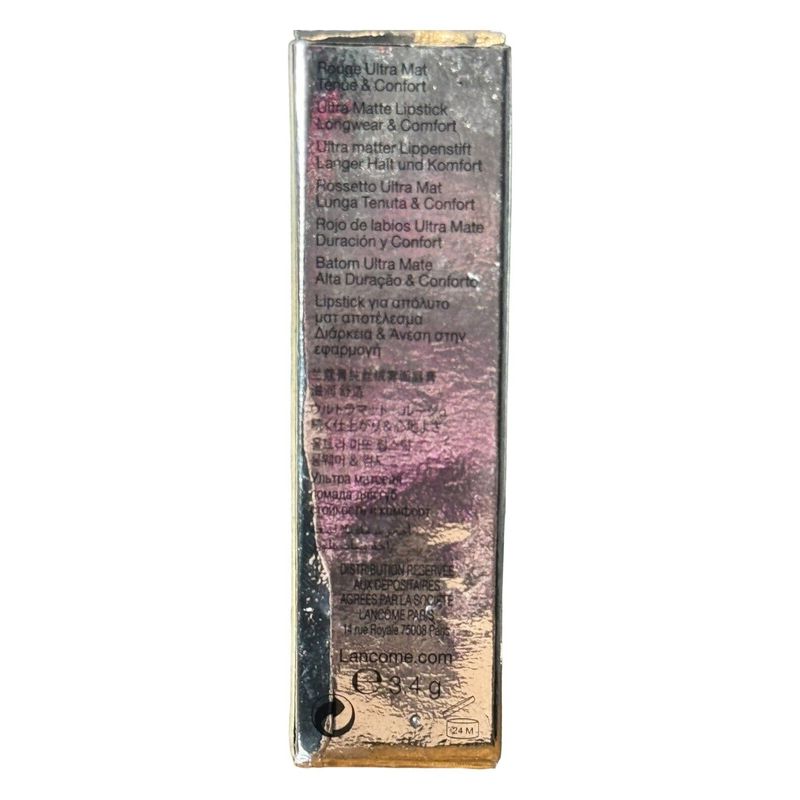 Rouge Ultra Mat
Tenue & Confort
Ultra Matte Lipstick
Longwear & Comfort
Ultra matter Lippenstift
Langer Halt und Komfort
Rossetto Ultra Mat
Lunga Tenuta & Confort
Rojo de labios Ultra Mate
Duración y Confort
Batom Ultra Mate
Alta Duração & Conforto
Lipstick για απόλυτο
ματ αποτέλεσμα
Διάρκεια & Άνεση στην
εφαρμογή
兰蔻菁纯丝绒雾面唇膏
滋润 舒适
ウルトラ マット ルージュ
続く仕上がり&心地よさ
울트라 마뜨 립스틱
롱웨어 & 컴
Ультра матовая
помада для губ
стойкость и комфорт
DISTRIBUTION RÉSERVÉE
AUX DÉPOSITAIRES
AGRÉÉS PAR LA SOCIÉTÉ
LANCÔME PARIS
14 rue Royale 75008 Paris
Lancome.com
℮ 3.4 g
24 M